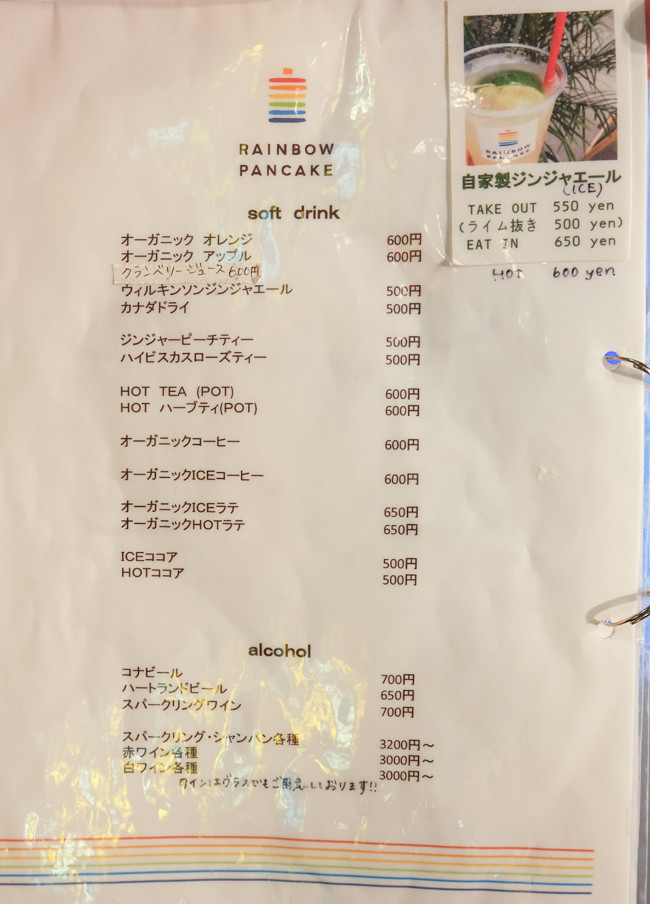 RAINBOW
PANCAKE
soft drink
オーガニック オレンジ 600円
オーガニック アップル 600円
クランベリージュース 600円
ウィルキンソンジンジャエール 500円
カナダドライ 500円
ジンジャーピーチティー 500円
ハイビスカスローズティー 500円
HOT TEA (POT) 600円
HOT ハーブティ(POT) 600円
オーガニックコーヒー 600円
オーガニックICEコーヒー 600円
オーガニックICEラテ 650円
オーガニックHOTラテ 650円
ICEココア 500円
HOTココア 500円
alcohol
コナビール 700円
ハートランドビール 650円
スパークリングワイン 700円
スパークリング・シャンパン各種 3200円～
赤ワイン各種 3000円～
白ワイン各種 3000円～
ワインはグラスでもご用意しております!!
RAINBOW
PANCAKE
自家製ジンジャエール
(ICE)
TAKE OUT 550 yen
(ライム抜き 500 yen)
EAT IN 650 yen
HOT 600 yen